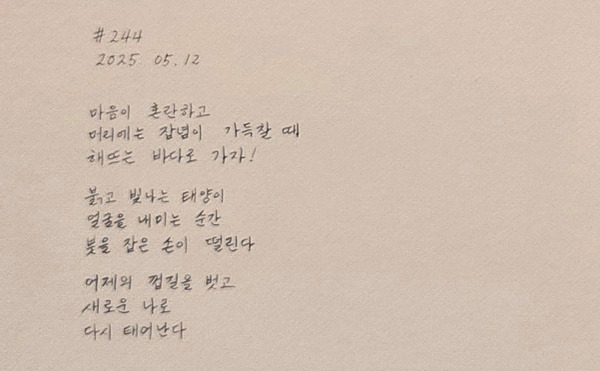 #244
2025. 05. 12
마음이 혼란하고
머리에는 잡념이 가득찰 때
해뜨는 바다로 가자!
붉고 빛나는 태양이
얼굴을 내미는 순간
붓을 잡은 손이 떨린다
어제의 껍질을 벗고
새로운 나로
다시 태어난다